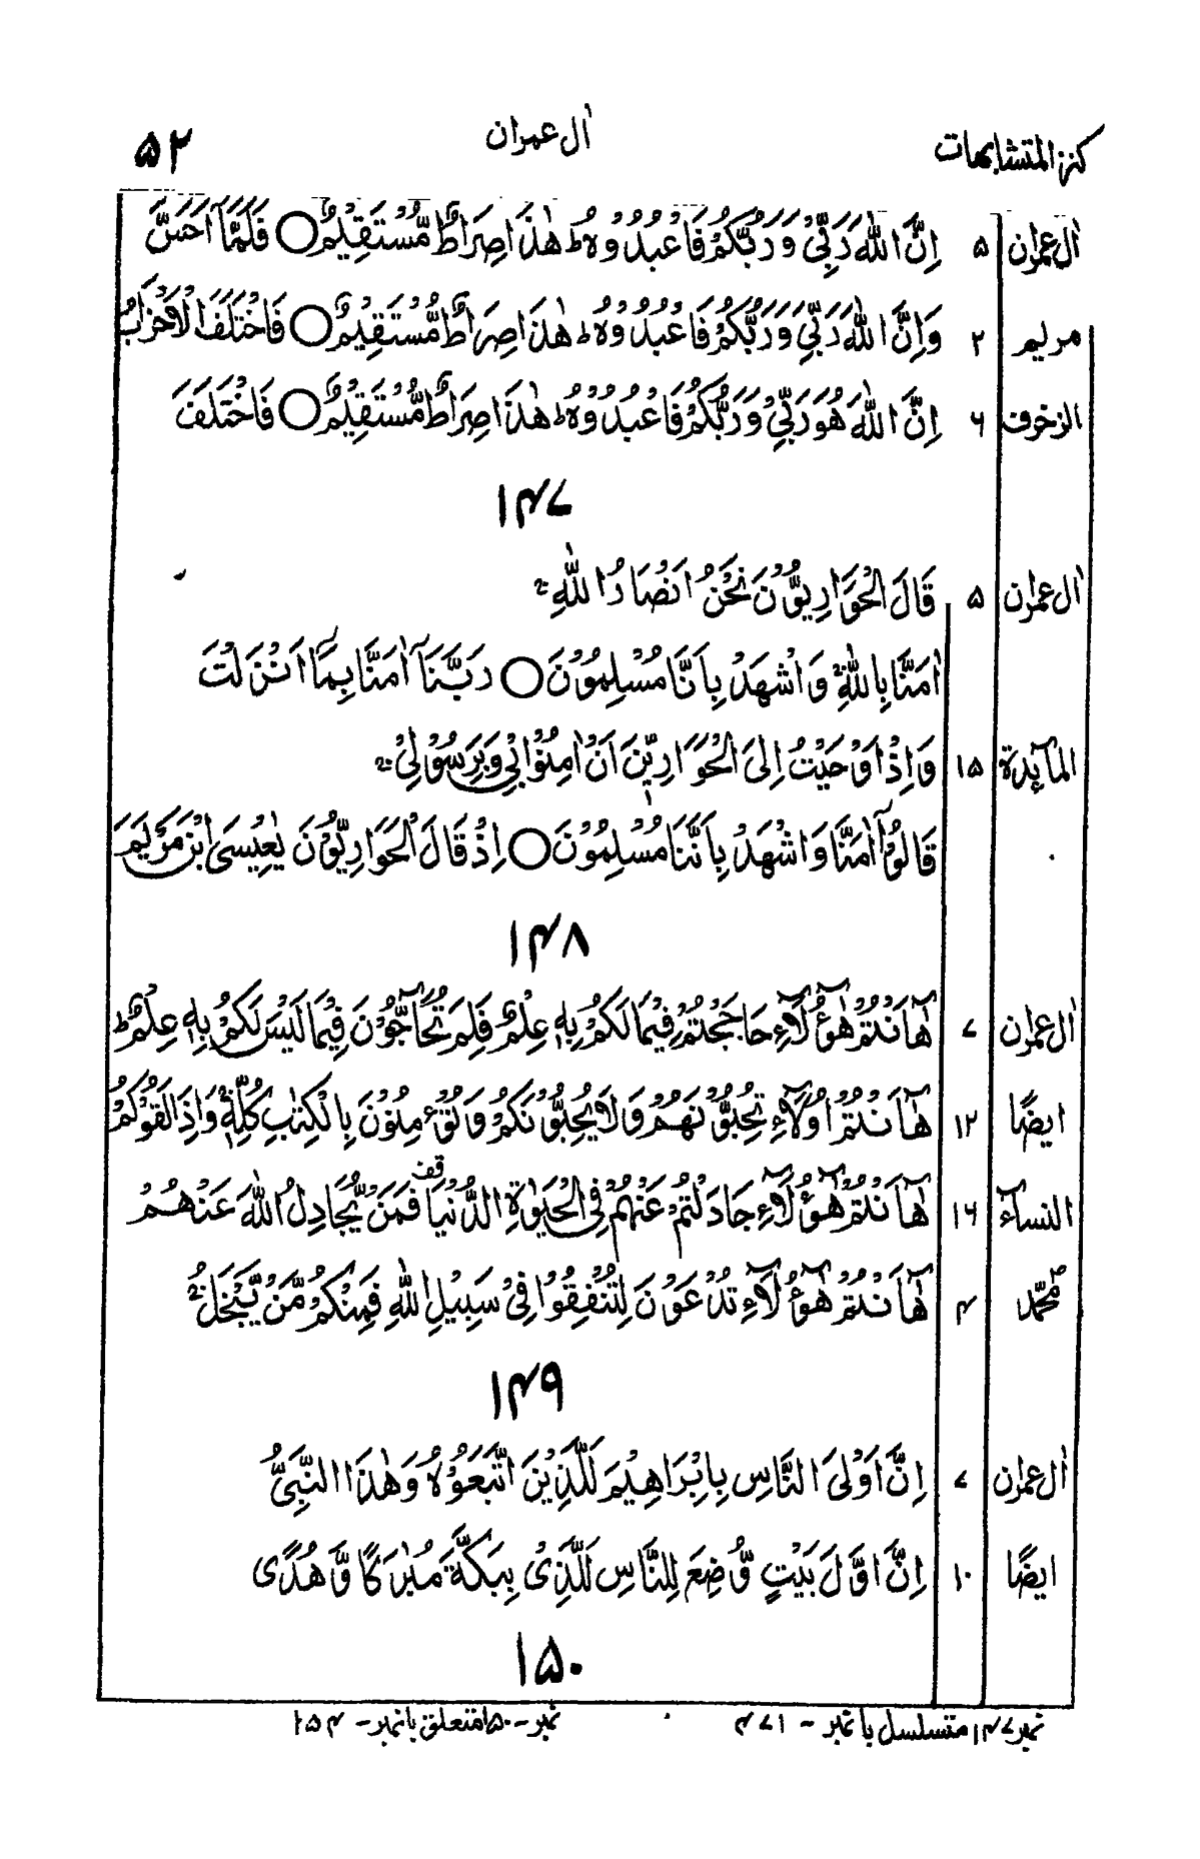 كنز المتشابهات اٰل عمران ۵۲
اٰل عمرٰن ۵ اِنَّ اللّٰهَ رَبِّيْ وَرَبُّكُمْ فَاعْبُدُوْهُ ؕ هٰذَا صِرَاطٌ مُّسْتَقِيْمٌ ○ فَلَمَّاۤ اَحَسَّ
مريم ۲ وَاِنَّ اللّٰهَ رَبِّيْ وَرَبُّكُمْ فَاعْبُدُوْهُ ؕ هٰذَا صِرَاطٌ مُّسْتَقِيْمٌ ○ فَاخْتَلَفَ الْاَحْزَابُ
الزخرف ۶ اِنَّ اللّٰهَ هُوَ رَبِّيْ وَرَبُّكُمْ فَاعْبُدُوْهُ ؕ هٰذَا صِرَاطٌ مُّسْتَقِيْمٌ ○ فَاخْتَلَفَ
۱۴۷
اٰل عمرٰن ۵ قَالَ الْحَوَارِيُّوْنَ نَحْنُ اَنْصَارُ اللّٰهِ ۚ
اٰمَنَّا بِاللّٰهِ ۚ وَاشْهَدْ بِاَنَّا مُسْلِمُوْنَ ○ رَبَّنَاۤ اٰمَنَّا بِمَاۤ اَنْزَلْتَ
المآئدة ۱۵ وَاِذْ اَوْحَيْتُ اِلَى الْحَوَارِيّٖنَ اَنْ اٰمِنُوْا بِيْ وَبِرَسُوْلِيْ ۚ
قَالُوْۤا اٰمَنَّا وَاشْهَدْ بِاَنَّنَا مُسْلِمُوْنَ ○ اِذْ قَالَ الْحَوَارِيُّوْنَ يٰعِيْسَى ابْنَ مَرْيَمَ
۱۴۸
اٰل عمرٰن ۷ هٰۤاَنْتُمْ هٰۤؤُلَآءِ حَاجَجْتُمْ فِيْمَا لَكُمْ بِهٖ عِلْمٌ فَلِمَ تُحَآجُّوْنَ فِيْمَا لَيْسَ لَكُمْ بِهٖ عِلْمٌ ؕ
ايضًا ۱۲ هٰۤاَنْتُمْ اُولَآءِ تُحِبُّوْنَهُمْ وَلَا يُحِبُّوْنَكُمْ وَتُؤْمِنُوْنَ بِالْكِتٰبِ كُلِّهٖ ۚ وَاِذَا لَقُوْكُمْ
النسآء ۱۶ هٰۤاَنْتُمْ هٰۤؤُلَآءِ جَادَلْتُمْ عَنْهُمْ فِي الْحَيٰوةِ الدُّنْيَا قف فَمَنْ يُّجَادِلُ اللّٰهَ عَنْهُمْ
محمّد ۴ هٰۤاَنْتُمْ هٰۤؤُلَآءِ تُدْعَوْنَ لِتُنْفِقُوْا فِيْ سَبِيْلِ اللّٰهِ فَمِنْكُمْ مَّنْ يَّبْخَلُ ۚ
۱۴۹
اٰل عمرٰن ۷ اِنَّ اَوْلَى النَّاسِ بِاِبْرَاهِيْمَ لَلَّذِيْنَ اتَّبَعُوْهُ وَهٰذَا النَّبِيُّ
ايضًا ۱۰ اِنَّ اَوَّلَ بَيْتٍ وُّضِعَ لِلنَّاسِ لَلَّذِيْ بِبَكَّةَ مُبٰرَكًا وَّهُدًى
۱۵۰
نمبر ۱۴۷ متسلسل بانمبر - ۴۷۱ نمبر - ۱۵۰ متعلق بانمبر - ۱۵۴